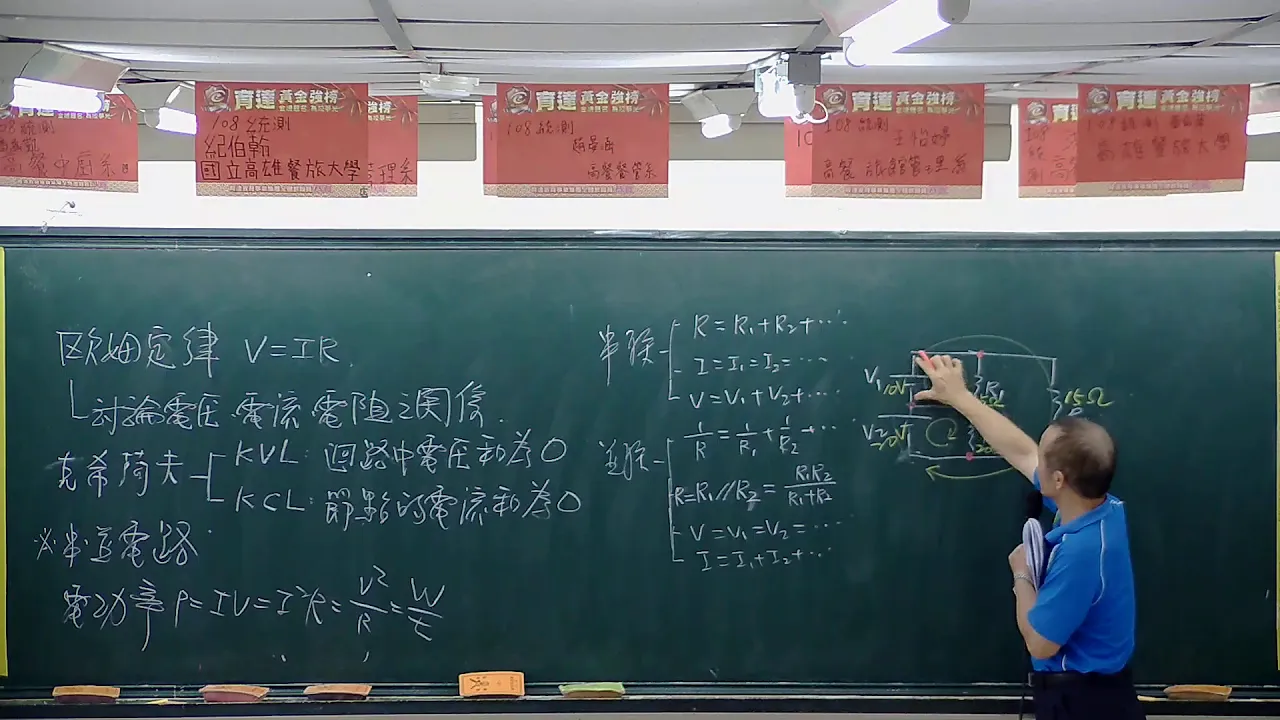 育達 黃金強榜
108統測
紀伯翰
國立高雄餐旅大學
育達 黃金強榜
108統測
高餐餐管系
育達 黃金強榜
108統測
王怡婷
高餐
育達 黃金強榜
108統測
高雄餐旅大學
歐姆定律 V=IR
討論電壓、電流、電阻之關係.
克希荷夫
KVL: 迴路中電壓和為0
KCL: 節點的電流和為0
※串並電路
電功率 P=IV=I²R=V²/R=W/t
串聯
R=R₁+R₂+⋯
I=I₁=I₂=⋯
V=V₁+V₂+⋯
並聯
1/R=1/R₁+1/R₂+⋯
R=R₁//R₂=R₁R₂/(R₁+R₂)
V=V₁=V₂=⋯
I=I₁+I₂+⋯
V₁
10V
R₁
15Ω
V₂
20V